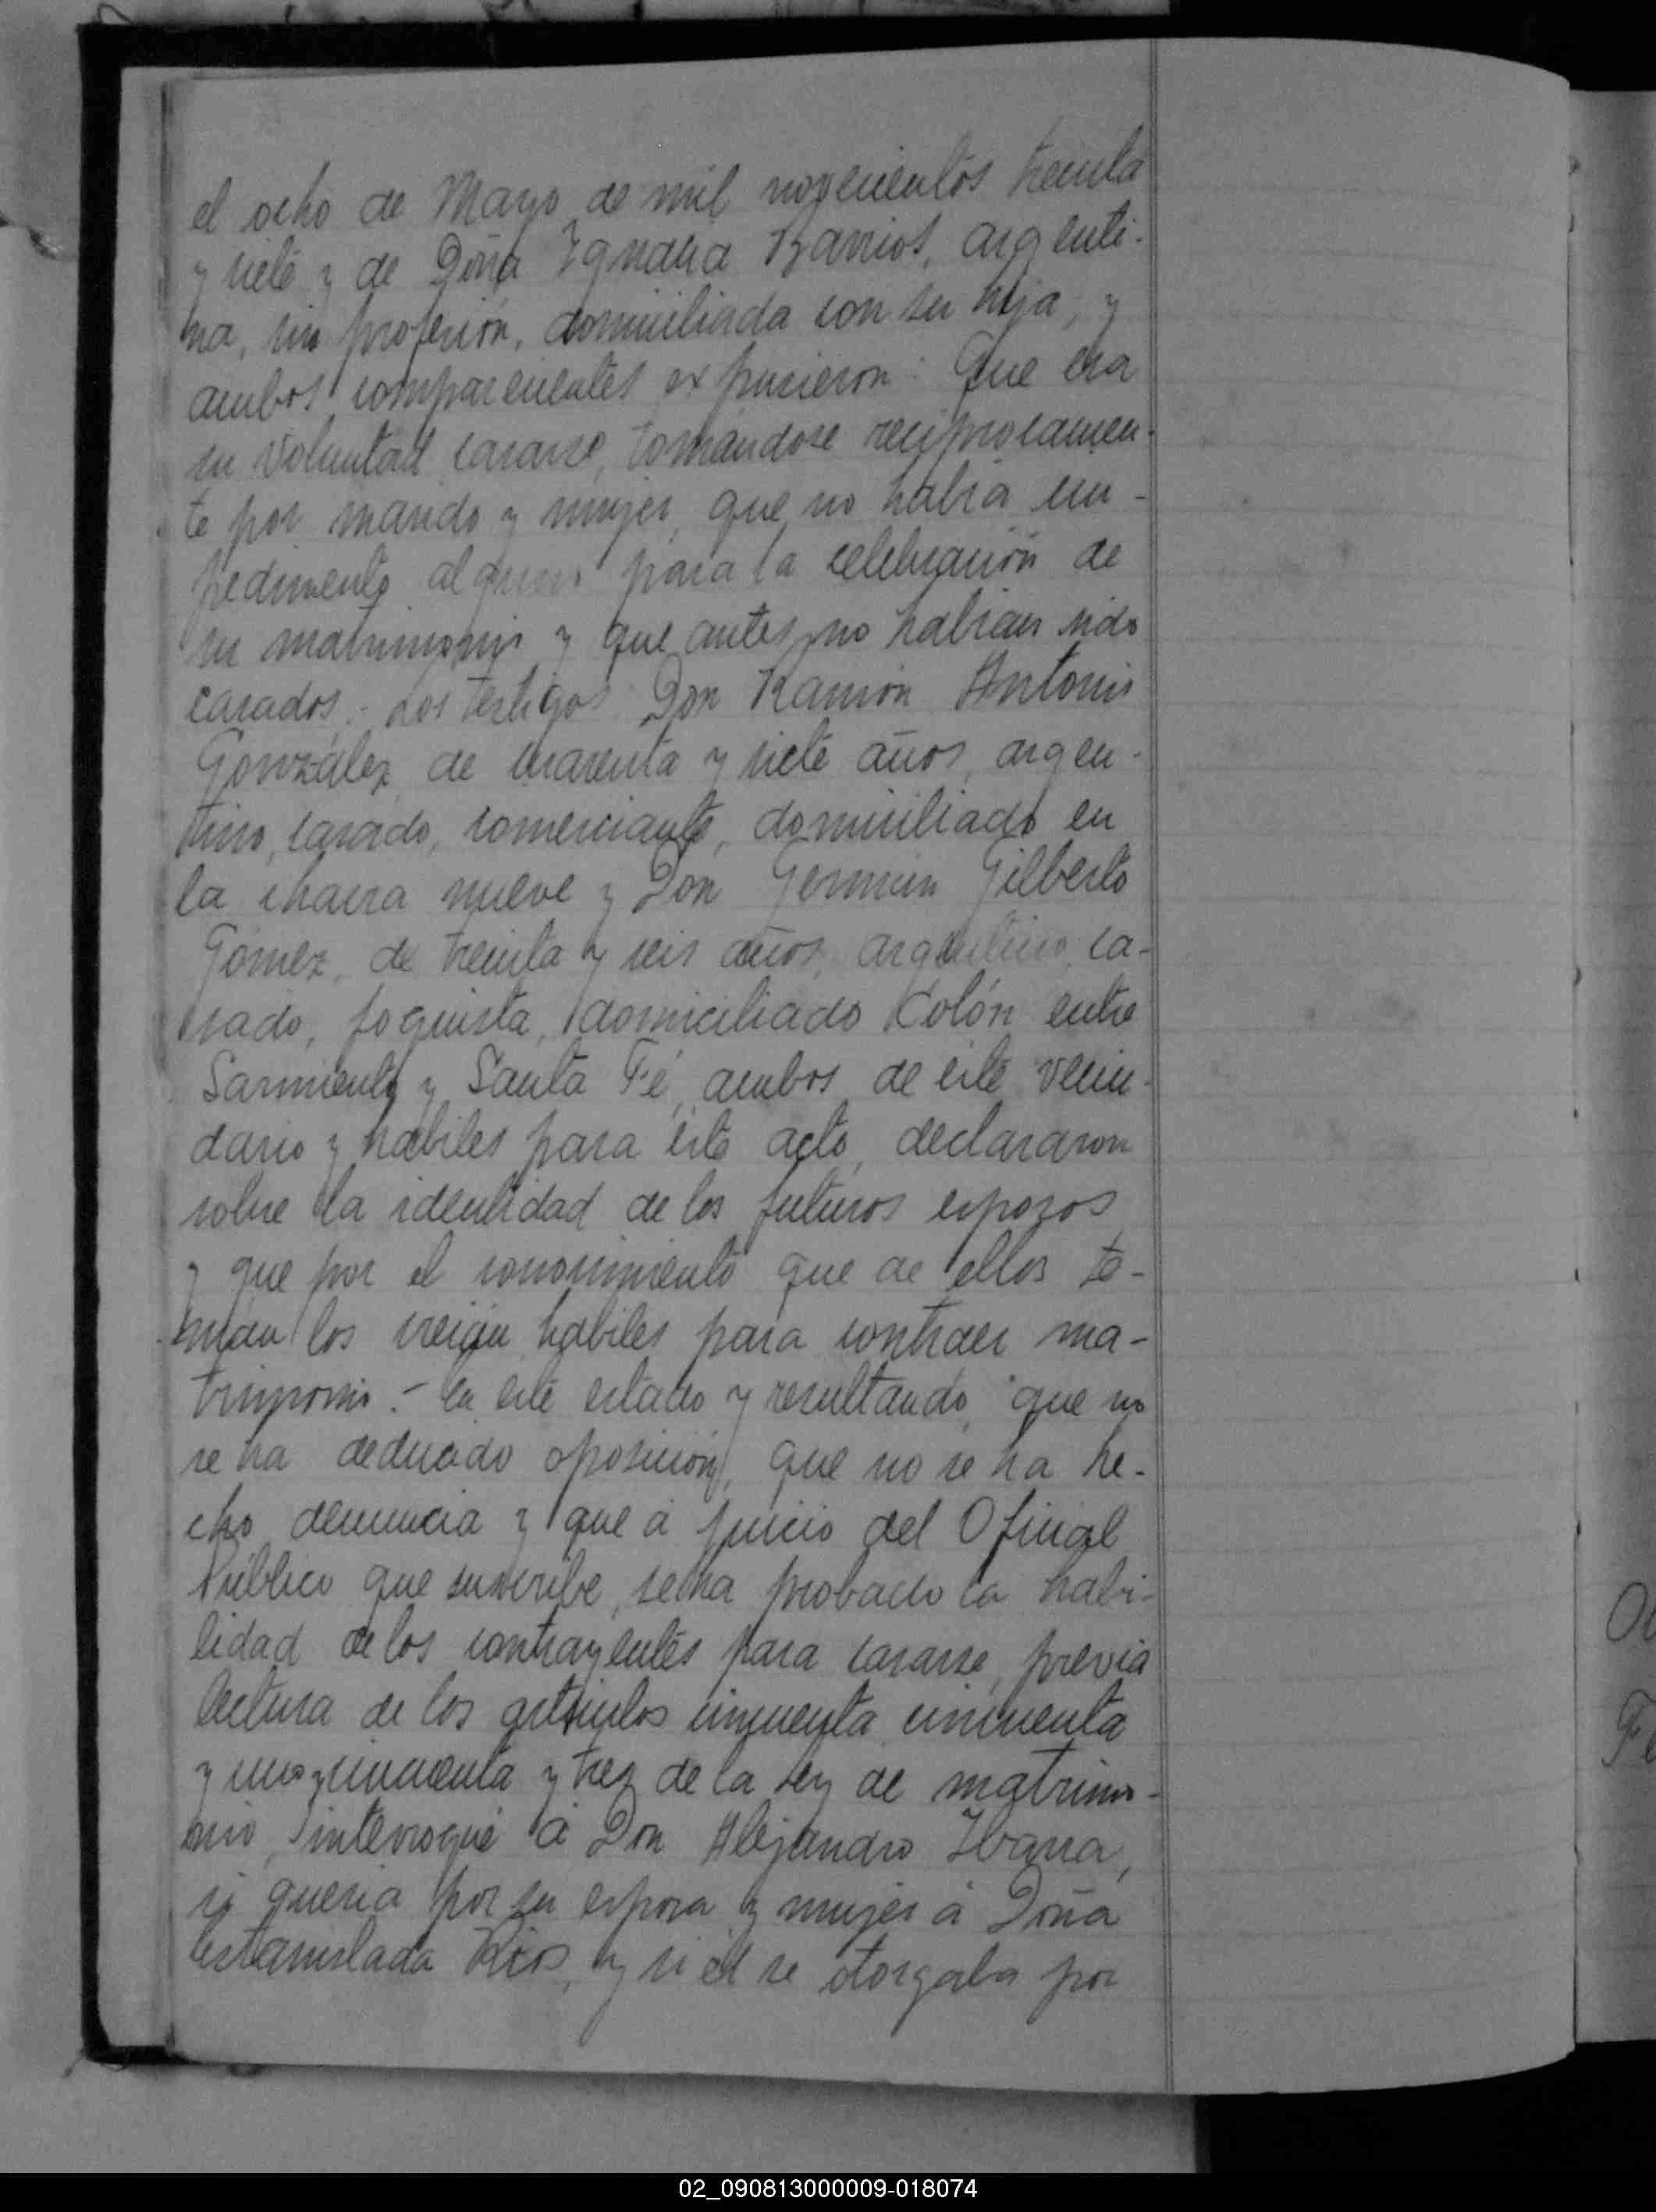 el ocho de Mayo de mil novecientos treinta
y siete y de Doña Ignacia Barrios, argenti-
na, sin profesión, domiciliada con su hija, y
ambos comparecientes expusieron: Que era
su voluntad casarse, tomándose reciprocamen-
te por marido y mujer, que no habia im-
pedimento alguno para la celebración de
su matrimonio y que antes no habian sido
casados.- Los testigos Don Ramón Antonio
González, de cuarenta y siete años, argen-
tino, casado, comerciante, domiciliado en
la chacra nueve y Don Germán Gilberto
Gómez, de treinta y seis años, argentino, ca-
sado, foguista, domiciliado Colón entre
Sarmiento y Santa Fé, ambos de este vecin-
dario y habiles para este acto, declararon
sobre la identidad de los futuros esposos
y que por el conocimiento que de ellos te-
nian los creian habiles para contraer ma-
trimonio.- En este estado y resultando, que no
se ha deducido oposición, que no se ha he-
cho denuncia y que á juicio del Oficial
Público que suscribe, se ha probado la habi-
lidad de los contrayentes para casarse, previa
lectura de los articulos cincuenta, cincuenta
y uno y cincuenta y tres de la Ley de matrimo-
nio, interrogué á Don Alejandro Ibarra,
si queria por su esposa y mujer á Doña
Estanislada Rios, y si él se otorgaba por
02_090813000009-018074